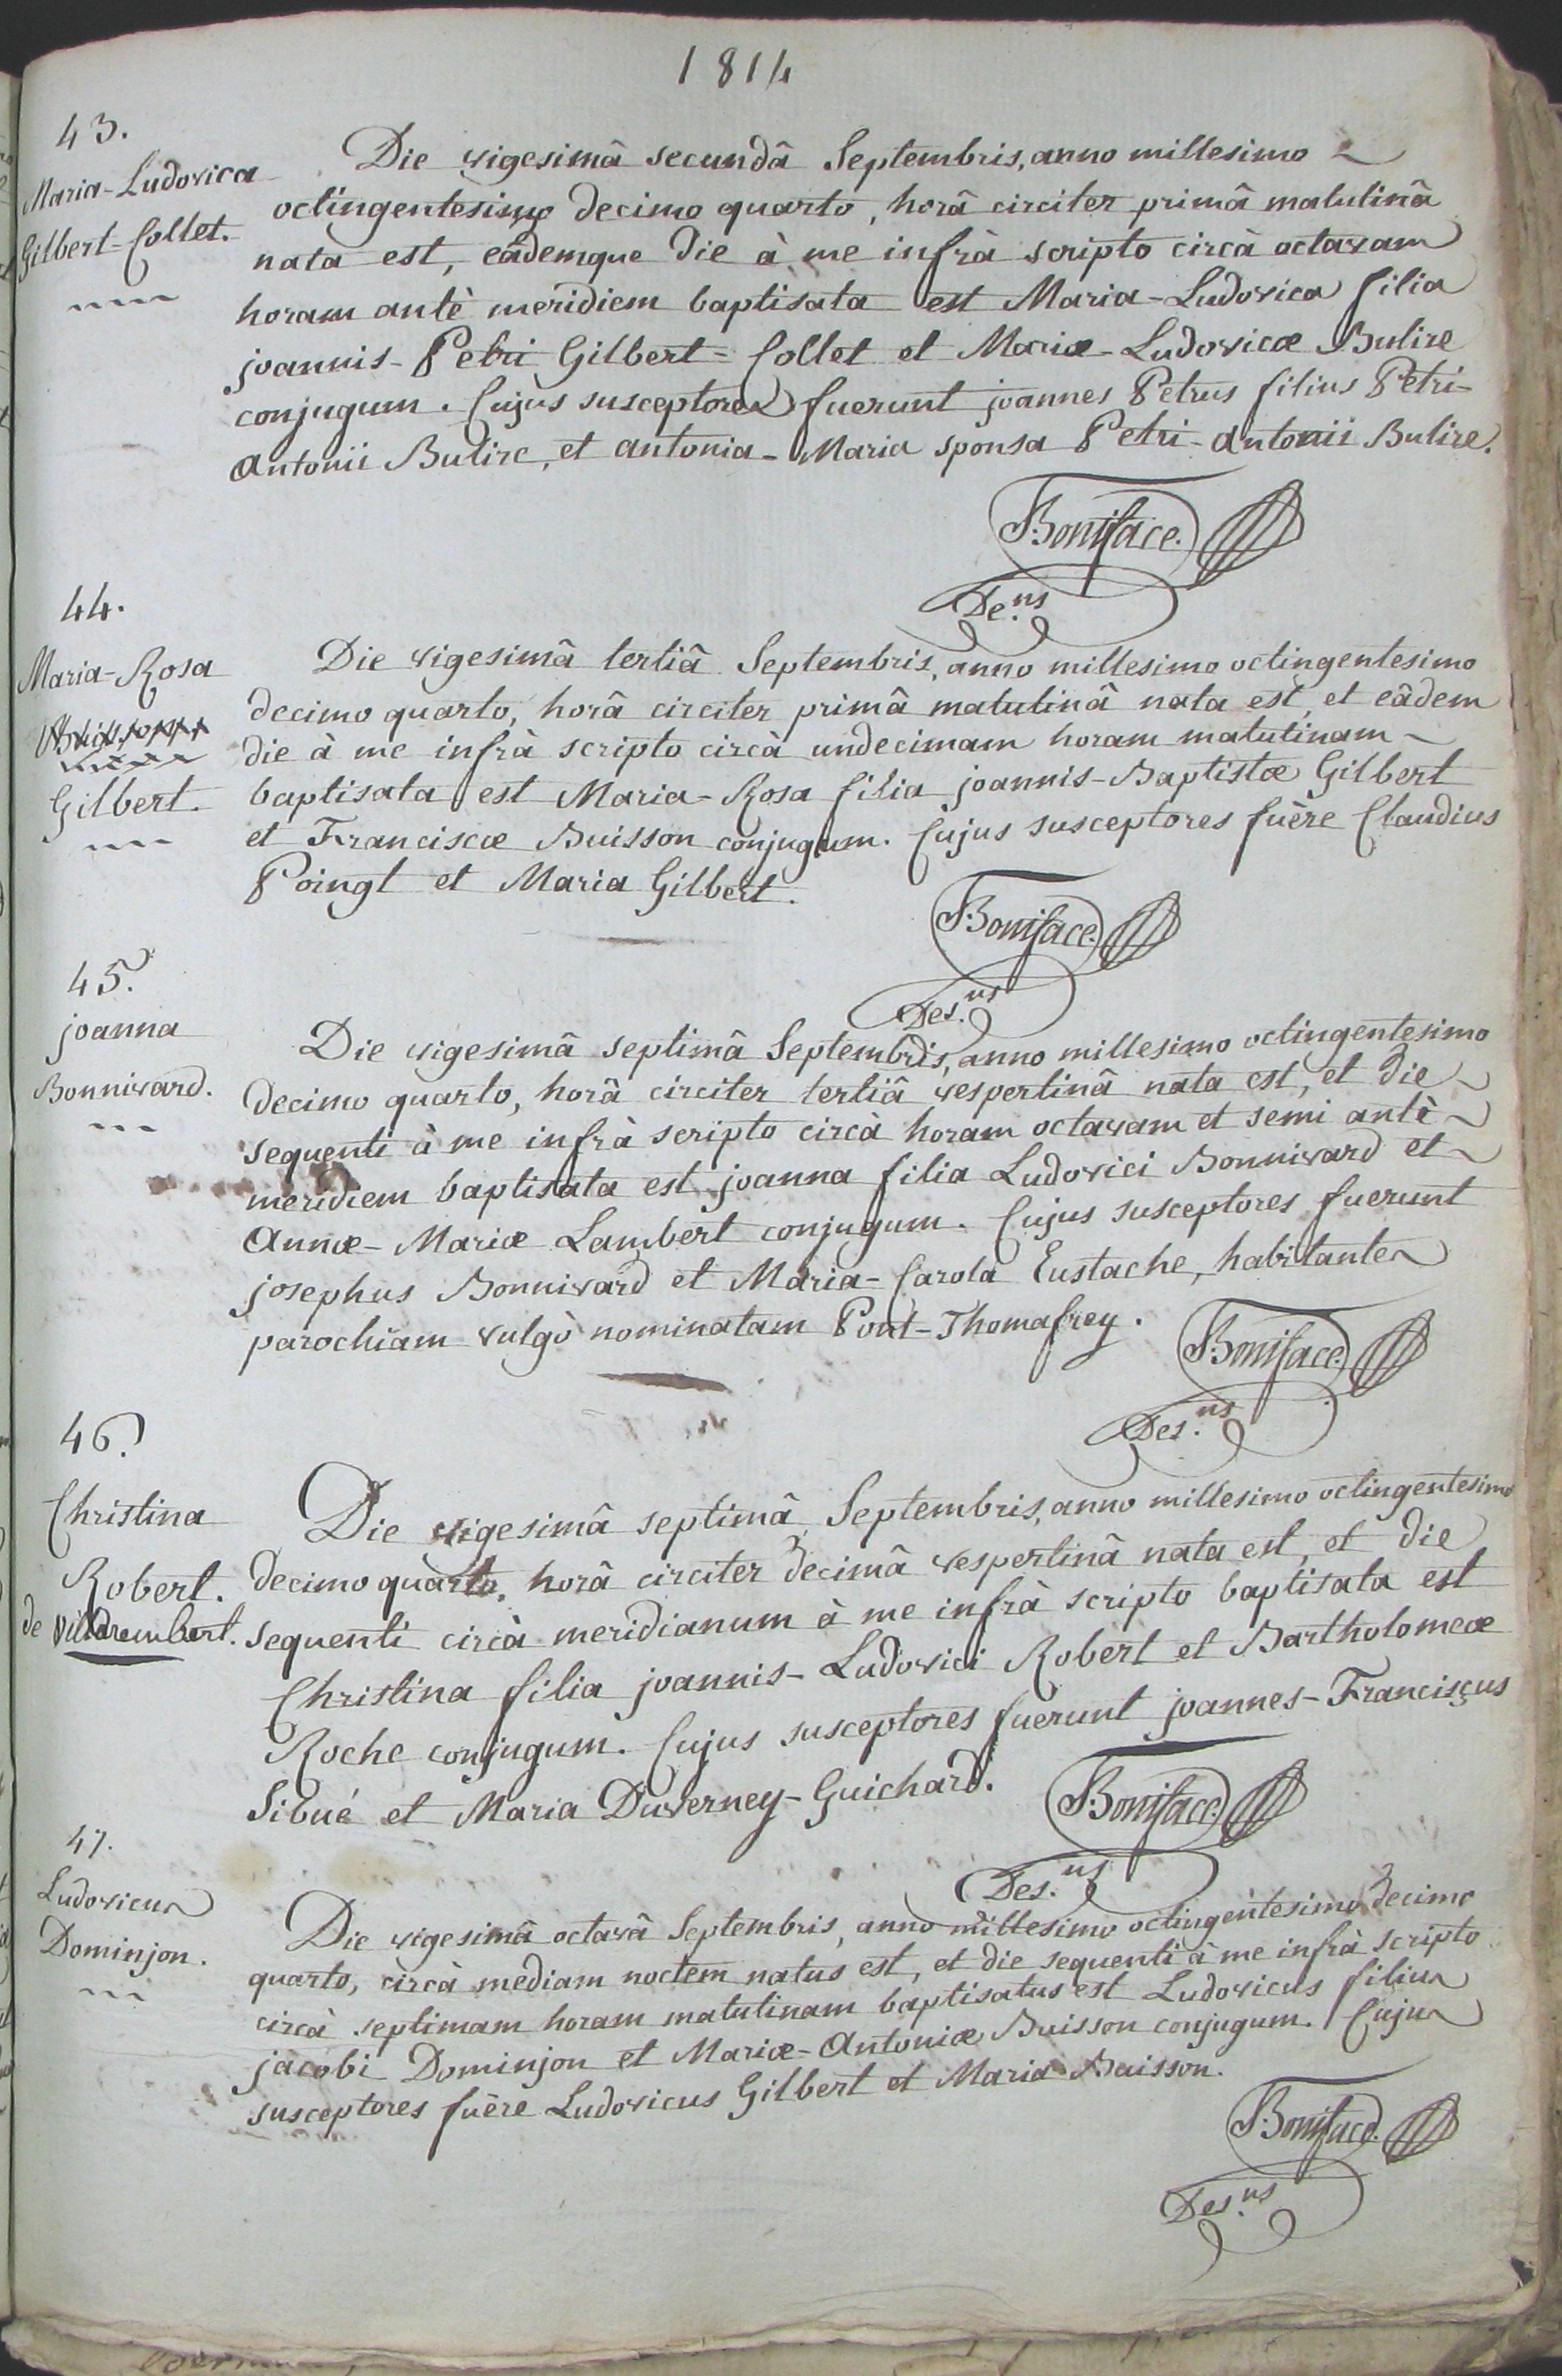 1814
43.
Maria-Ludovica
Gilbert-Collet.
Die vigesimâ secundâ Septembris, anno millesimo
octingentesimo decimo quarto, horâ circiter primâ matutinâ
nata est, eâdemque die à me infrà scripto circà octavam
horam antè meridiem baptisata est Maria-Ludovica filia
joannis-Petri Gilbert-Collet et Mariæ-Ludovicæ Bulire
conjugum. Cujus susceptores fuerunt joannes Petrus filius Petri-
antonii Bulire, et antonia-Maria sponsa Petri-antonii Bulire.
Boniface.
De.ns
44.
Maria-Rosa
Gilbert.
Die vigesimâ tertiâ Septembris, anno millesimo octingentesimo
decimo quarto, horâ circiter primâ matutinâ nata est, et eâdem
die à me infrà scripto circà undecimam horam matutinam
baptisata est Maria-Rosa filia joannis-Baptistæ Gilbert
et Franciscæ Buisson conjugum. Cujus susceptores fuère Claudius
Poingt et Maria Gilbert.
Boniface.
Des.ns
45.
joanna
Bonnivard.
Die vigesimâ septimâ Septembris, anno millesimo octingentesimo
decimo quarto, horâ circiter tertiâ vespertinâ nata est, et die
sequenti à me infrà scripto circà horam octavam et semi antè
meridiem baptisata est joanna filia Ludovici Bonnivard et
annæ-Mariæ Lambert conjugum. Cujus susceptores fuerunt
josephus Bonnivard et Maria-Carola Eustache, habitantes
parochiam vulgò nominatam Pont-Thomafrey.
Boniface.
Des.ns
46.
Christina
Robert.
de villarembert.
Die vigesimâ septimâ Septembris, anno millesimo octingentesimo
decimo quarto, horâ circiter decimâ vespertinâ nata est, et die
sequenti circà meridianum à me infrà scripto baptisata est
Christina filia joannis-Ludovici Robert et Bartholomeæ
Roche conjugum. Cujus susceptores fuerunt joannes-Franciscus
Sibué et Maria Duverney-Guichard.
Boniface.
Des.ns
47.
Ludovicus
Dominjon.
Die vigesimâ octavâ Septembris, anno millesimo octingentesimo decimo
quarto, circà mediam noctem natus est, et die sequenti à me infrà scripto
circà septimam horam matutinam baptisatus est Ludovicus filius
jacobi Dominjon et Mariæ-Antoniæ Buisson conjugum. Cujus
susceptores fuère Ludovicus Gilbert et Maria Buisson.
Boniface.
Des.ns